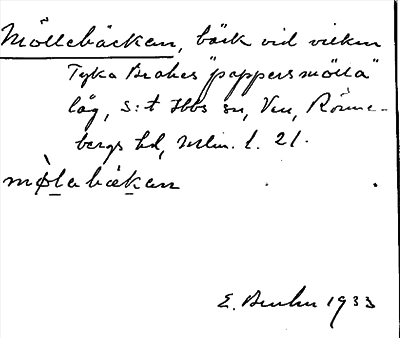 Möllebäcken, bäck vid vilken
Tyko Brahes "pappersmölla"
låg, S:t Ibbs sn, Ven, Rönne-
bergs hd, Mlm. l. 21.
mølabäkan
E. 1933